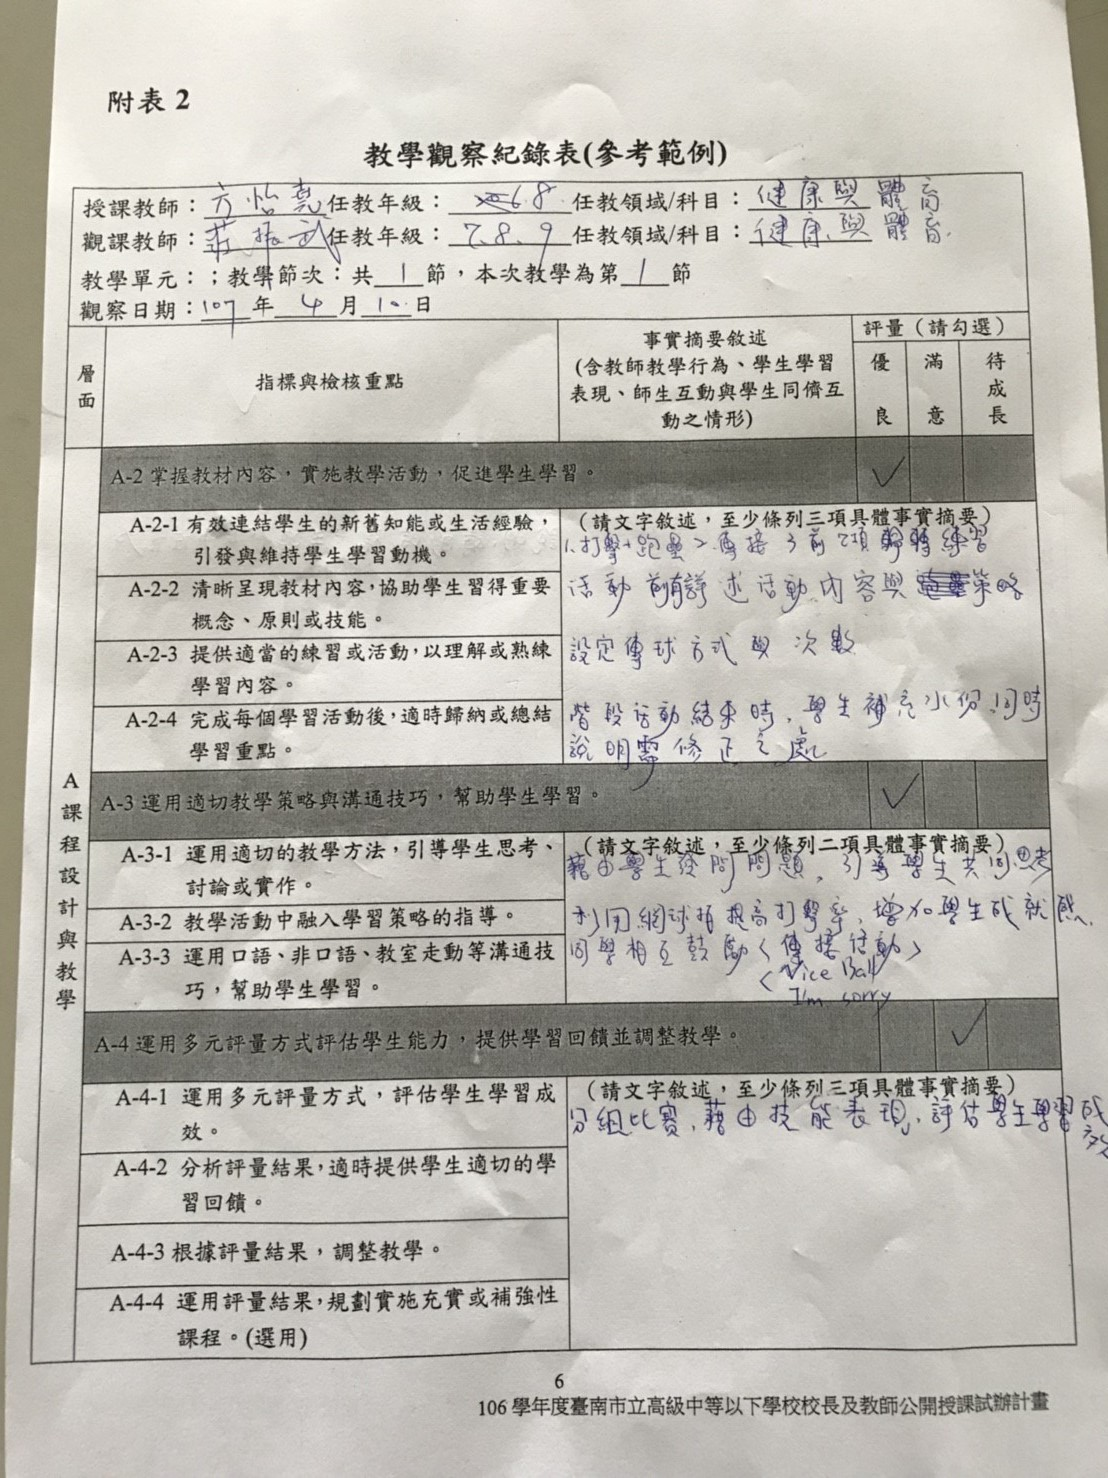 附表 2
教學觀察紀錄表(參考範例)
授課教師：方怡堯任教年級：6.8.任教領域/科目：健康與體育
觀課教師：莊振武任教年級：7.8.9任教領域/科目：健康與體育.
教學單元：；教學節次：共1節，本次教學為第1節
觀察日期：107年4月10.日
層面
指標與檢核重點
事實摘要敘述
(含教師教學行為、學生學習表現、師生互動與學生同儕互動之情形)
評量（請勾選）
優良
滿意
待成長
A課程設計與教學
A-2 掌握教材內容，實施教學活動，促進學生學習。
✓
A-2-1 有效連結學生的新舊知能或生活經驗，
引發與維持學生學習動機。
（請文字敘述，至少條列三項具體事實摘要）
1.打擊+跑壘 2.傳接 3.前2項 練習
A-2-2 清晰呈現教材內容，協助學生習得重要
概念、原則或技能。
活動前有詳述活動內容與策略
A-2-3 提供適當的練習或活動，以理解或熟練
學習內容。
設定傳球方式與次數
A-2-4 完成每個學習活動後，適時歸納或總結
學習重點。
階段活動結束時，學生補充水份，同時
說明需修正之處
A-3 運用適切教學策略與溝通技巧，幫助學生學習。
✓
A-3-1 運用適切的教學方法，引導學生思考、
討論或實作。
（請文字敘述，至少條列二項具體事實摘要）
藉由學生發問問題，引導學生共同思考
A-3-2 教學活動中融入學習策略的指導。
利用網球拍提高打擊率，增加學生成就感，
A-3-3 運用口語、非口語、教室走動等溝通技
巧，幫助學生學習。
同學相互鼓勵〈傳接活動〉
〈Nice Ball
I'm sorry
A-4 運用多元評量方式評估學生能力，提供學習回饋並調整教學。
✓
A-4-1 運用多元評量方式，評估學生學習成
效。
（請文字敘述，至少條列三項具體事實摘要）
分組比賽，藉由技能表現，評估學生學習成
效
A-4-2 分析評量結果，適時提供學生適切的學
習回饋。
A-4-3 根據評量結果，調整教學。
A-4-4 運用評量結果，規劃實施充實或補強性
課程。(選用)
6
106 學年度臺南市立高級中等以下學校校長及教師公開授課試辦計畫